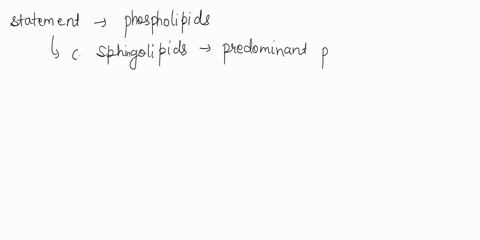 statement → phospholipids
↳ c. sphingolipids → predominant p